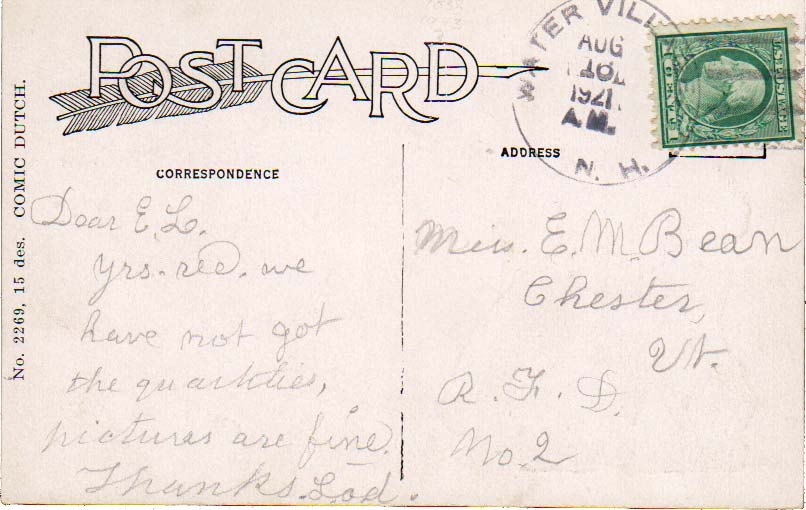 POST CARD
WATER VILL
AUG
18
1921
A.M.
N. H.
ADDRESS
CORRESPONDENCE
No. 2269, 15 des. COMIC DUTCH.
Dear E. L.
Yrs. rec. we
have not got
the quantities,
pictures are fine.
Thanks.
Miss. E. M. Bean
Chester,
Vt.
R. F. D.
No. 2